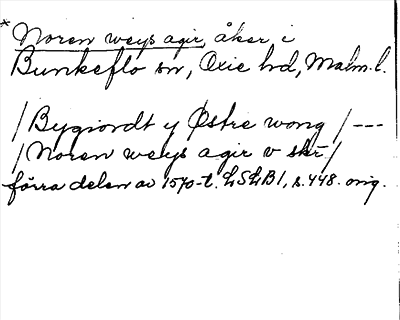 * Noren weys agir, åker i
Bunkeflo sn, Oxie hd, Malm. l.
/Bygiordt y Østre wong/ ---
/Noren weys agir v skr/
förra delen av 1570-t. LSLB1, s. 448. orig.